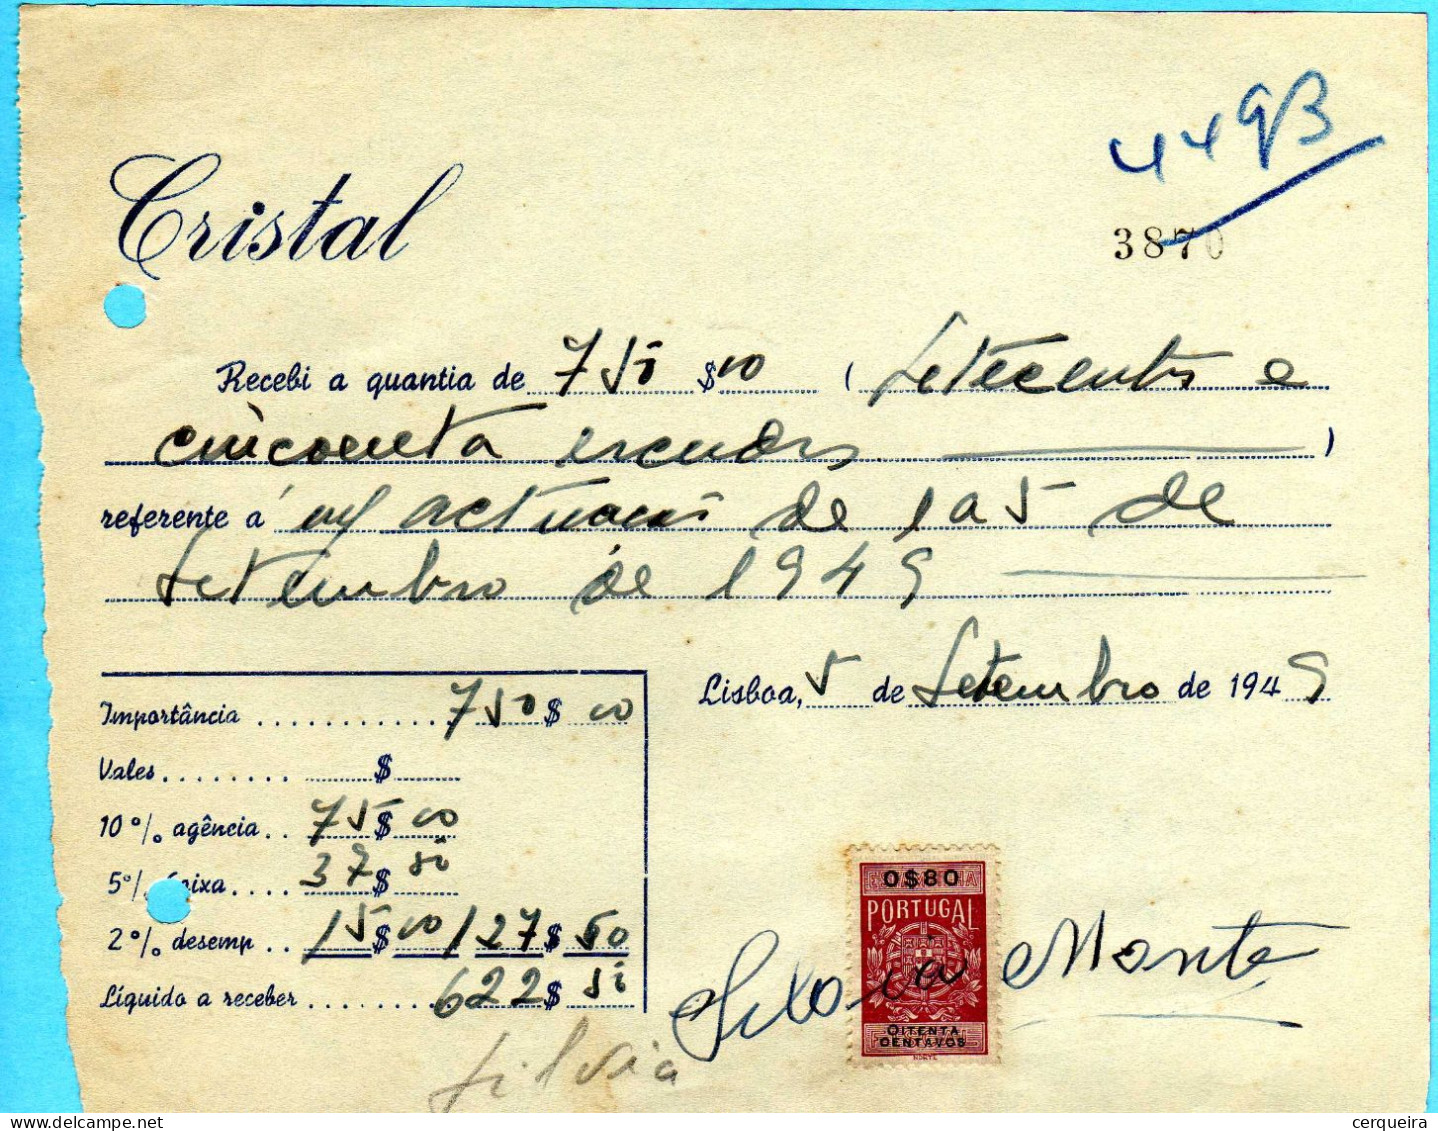 4493
Cristal
3870
Recebi a quantia de 750 $ 00 ( Setecentos e
cincoenta escudos )
referente á actuacão de 1 a 5 de
Setembro de 1949
Lisboa, 5 de Setembro de 1949
Importância ............ 750 $ 00
Vales ........ $
10% agência .. 75 $ 00
5% Caixa .... 37 $ 50
2% desemp .. 15 $ 00 127 $ 50
Líquido a receber ........ 622 $ 50
0$80
PORTUGAL
OITENTA
CENTAVOS
Silvia Monte
Silvia
cerqueira